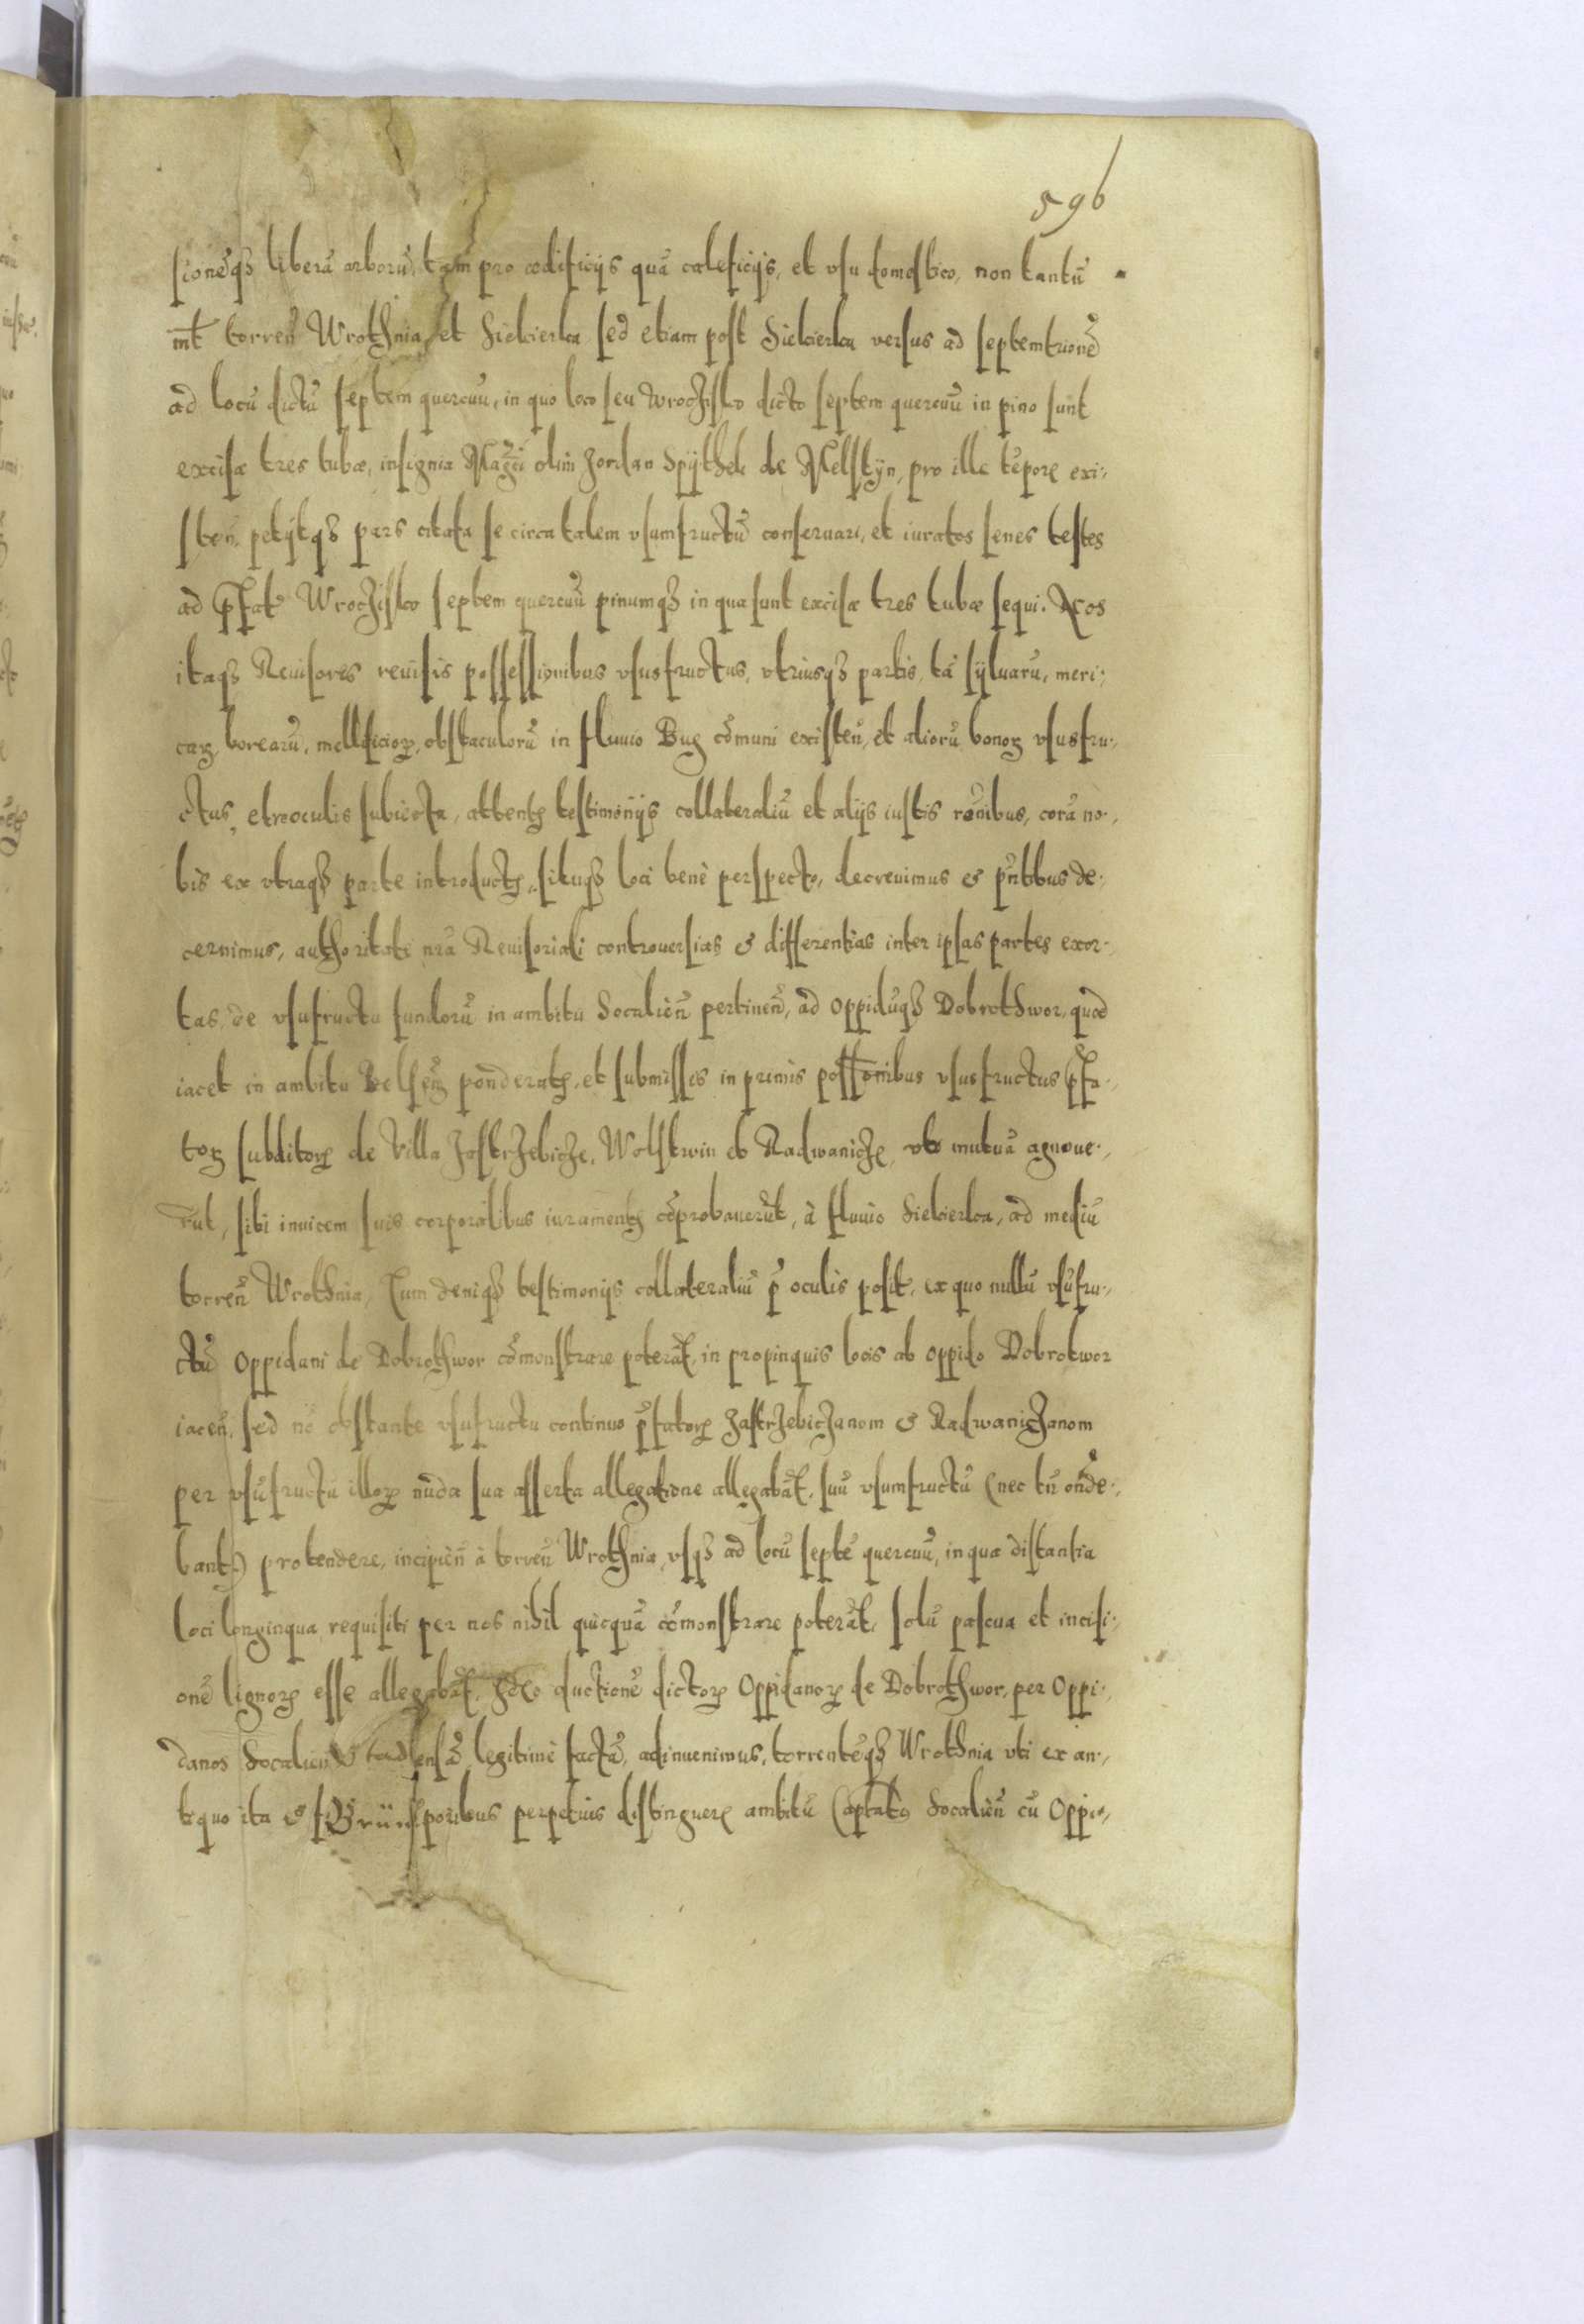 596
sioneqз liberā arborū, tam pro ædificijs quā caleficijs, et vsu domestico, non tantū
int̄ torren̄ Wrothnia, et Siekierka sed etiam post Siekierka versus ad septemtrionē
ad locū dictū septem quercuū, in quo loco seu Uroczisko dicto septem quercuū in pino sunt
excisæ tres tubæ, insignia Mag̃ci olim Jordan Spijthek de Melstijn, pro illc tēpore exi:
sten̄, petijtqз pars citata se circa talem vsumfructū conseruari, et iuratos senes testes
ad p̄fat̄ Wroczisko septem quercuū pinumqз in qua sunt excisæ tres tubæ sequi. Nos
itaqз Reuisores reuisis possessionibus vsusfructus, vtriusqз partis, tā syluarū, meri:
caꝝ, borearū, mellificioꝝ, obstaculorū in fluuio Bug cōmuni existen̄, et aliorū bonoꝝ vsusfru:
ctus, et oculis subiecta, attentis testimonijs collateraliū et alijs iustis rōnibus, corā no:
bis ex vtraqз parte introductis, situqз loci benè perspecto, decreuimus & pn̄tibus de:
cernimus, authoritate nr̄a Reuisoriali controuersias & differentias inter ipsas partes exor:
tas, de vsufructu fundorū in ambitu Socalien̄ pertinen̄, ad oppidūqз Dobrothwor, quod
iacet in ambitu Belsen̄ ponderatis, et submissis in primis possōnibus vsusfructus p̄fa:
toꝝ subditoꝝ de Villa Jastrzebicze, Wolswin et Radwanicze, vbi mutuā agnoue:
rūt, sibi inuicem suis corporalibus iuramentis cōprobauerūt, à fluuio Siekierka, ad mediū
torren̄ Wrothnia, Cum deniqз testimonijs collateraliū p̄ oculis posit̄, ex quo nullū vsufru:
ctū oppidani de Dobrothwor cōmonstrare poterāt, in propinquis locis ab oppido Dobrotwor
iacen̄, sed nō obstante vsufructu continuo p̄fatoꝝ Jastrzebiczanom & Radwaniczanom
per vsūfructū illoꝝ nuda sua asserta allegatione allegabāt, suū vsumfructū (nec tn̄ on̄de:
bant) protendere, incipien̄ à torren̄ Wrothnia, vsqз ad locū septē quercuū, in qua distantia
loci longinqua requisiti per nos nihil quicquā cōmonstrare poterāt, solū pascua et incisi:
onē lignoꝝ esse allegabāt, Ideo ductionē dictoꝝ Oppidanoꝝ de Dobrothwor, per Oppi:
danos Socalien̄ & legitimè factā, adinuenimus, torrentēqз Wrothnia vti ex an:
tiquo ita & perpetuis distinguere ambitū Capitat̄ Socalien̄ cū Oppi: